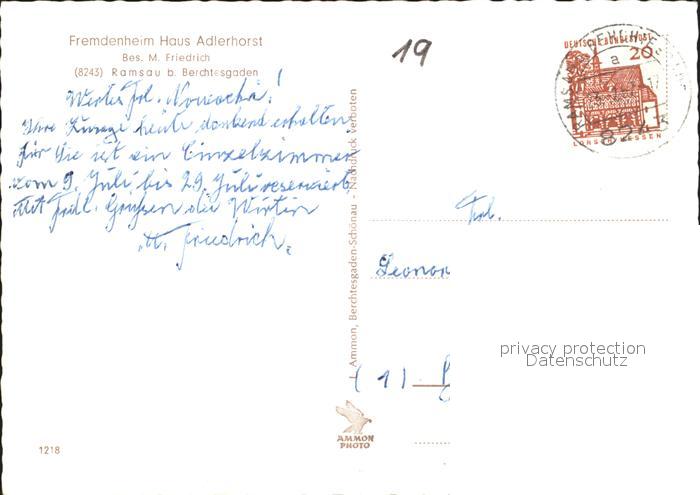 Fremdenheim Haus Adlerhorst
Bes. M. Friedrich
(8243) Ramsau b. Berchtesgaden
Wertes Frl. Nowocka!
Ihre Zusage heute dankend erhalten,
für Sie ist ein Einzelzimmer
vom 9. Juli bis 29. Juli reserviert.
Mit Frdl. Grüßen die Wirtin
M. Friedrich.
1218
L. Ammon, Berchtesgaden-Schönau - Nachdruck verboten
AMMON
PHOTO
19
DEUTSCHE BUNDESPOST
20
LORSCH HESSEN
a
824
Frl.
Leonor
(1)
privacy protection
Datenschutz